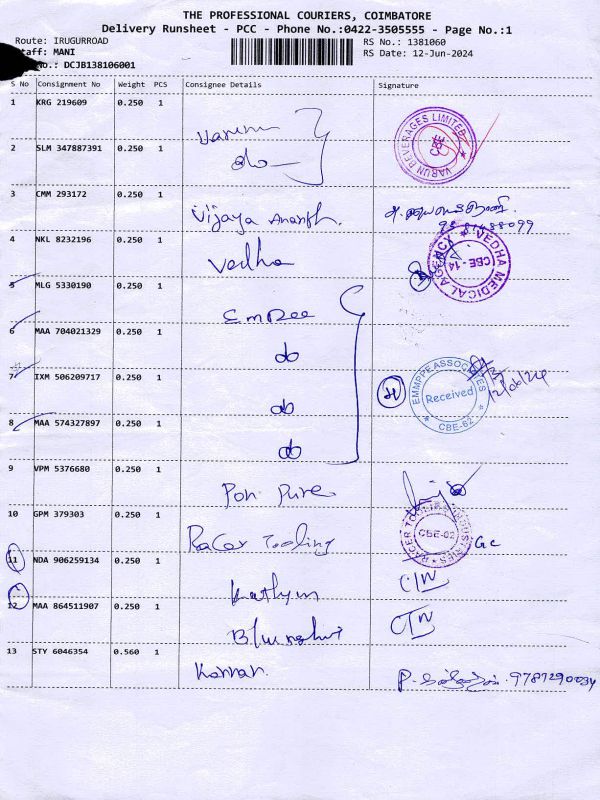 THE PROFESSIONAL COURIERS, COIMBATORE
Delivery Runsheet - PCC - Phone No.:0422-3505555 - Page No.:1
Route: IRUGURROAD RS No.: 1381060
Staff: MANI RS Date: 12-Jun-2024
No.: DCJB138106001
S No Consignment No Weight PCS Consignee Details Signature
1 KRG 219609 0.250 1 Varun
VARUN BEVERAGES LIMITED CBE
2 SLM 347887391 0.250 1 do
3 CMM 293172 0.250 1 Vijaya Ananth.
4 NKL 8232196 0.250 1 Vedha
VEDHA MEDICAL AGENCY CBE-14
5 MLG 5330190 0.250 1 EmPee
6 MAA 704021329 0.250 1 do
7 IXM 506209717 0.250 1 do
EMMPPEASSOCIATES Received CBE-62 12/06/24
8 MAA 574327897 0.250 1 do
9 VPM 5376680 0.250 1 Pon Pure
10 GPM 379303 0.250 1 Racer Tooling
RACER TOOLING INDUSTRIES CBE-02
11 NDA 906259134 0.250 1
12 MAA 864511907 0.250 1
13 STY 6046354 0.560 1 Kannan. 9787290034